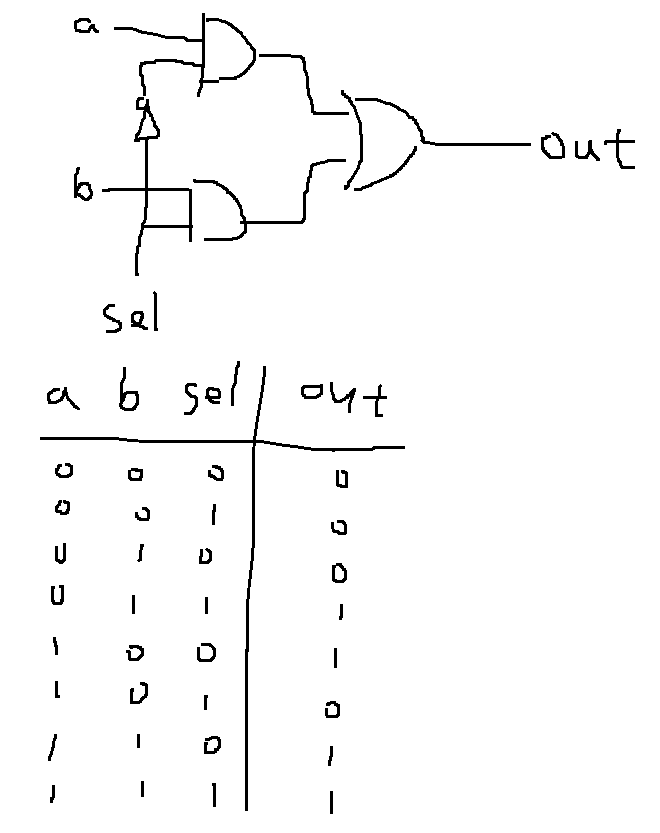 a
out
b
sel
a b sel out
0 0 0 0
0 0 1 0
0 1 0 0
0 1 1 1
1 0 0 1
1 0 1 0
1 1 0 1
1 1 1 1